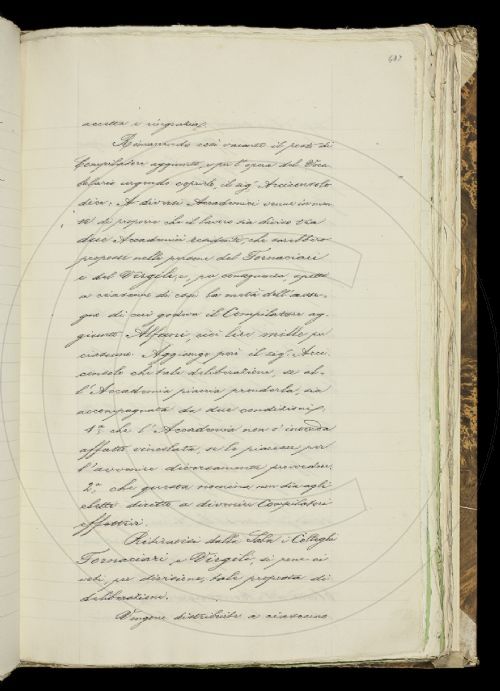 accetta e ringrazia.
Rimanendo così vacante il posto di
Compilatore aggiunto, e per l'opera del Voca-
bolario urgendo coprirlo, il sig.r Arciconsolo
dice: A diversi Accademici venne in men-
te di proporre che il lavoro sia diviso tra
due Accademici residenti, che sarebbero
proposti nelle persone del Fornaciari
e del Virgili; e, per conseguenza, spetti
a ciascuno di essi la metà dell'asse-
gno di cui godeva il Compilatore ag-
giunto Alfani, cioè lire mille per
ciascuno. Aggiunge però il sig.r Arci-
consolo che tale deliberazione, se al-
l'Accademia piaccia prenderla, sia
accompagnata da due condizioni;
1.a che l'Accademia non s'intenda
affatto vincolata, se le piacesse per
l'avvenire diversamente provvedere;
2.a che questa nomina non dia agli
eletti diritto a divenire Compilatori
effettivi.
Ritiratisi dalla Sala i Colleghi
Fornaciari e Virgili, si pone ai
voti, per divisione, tale proposta di
deliberazione.
Vengono distribuite a ciascuno